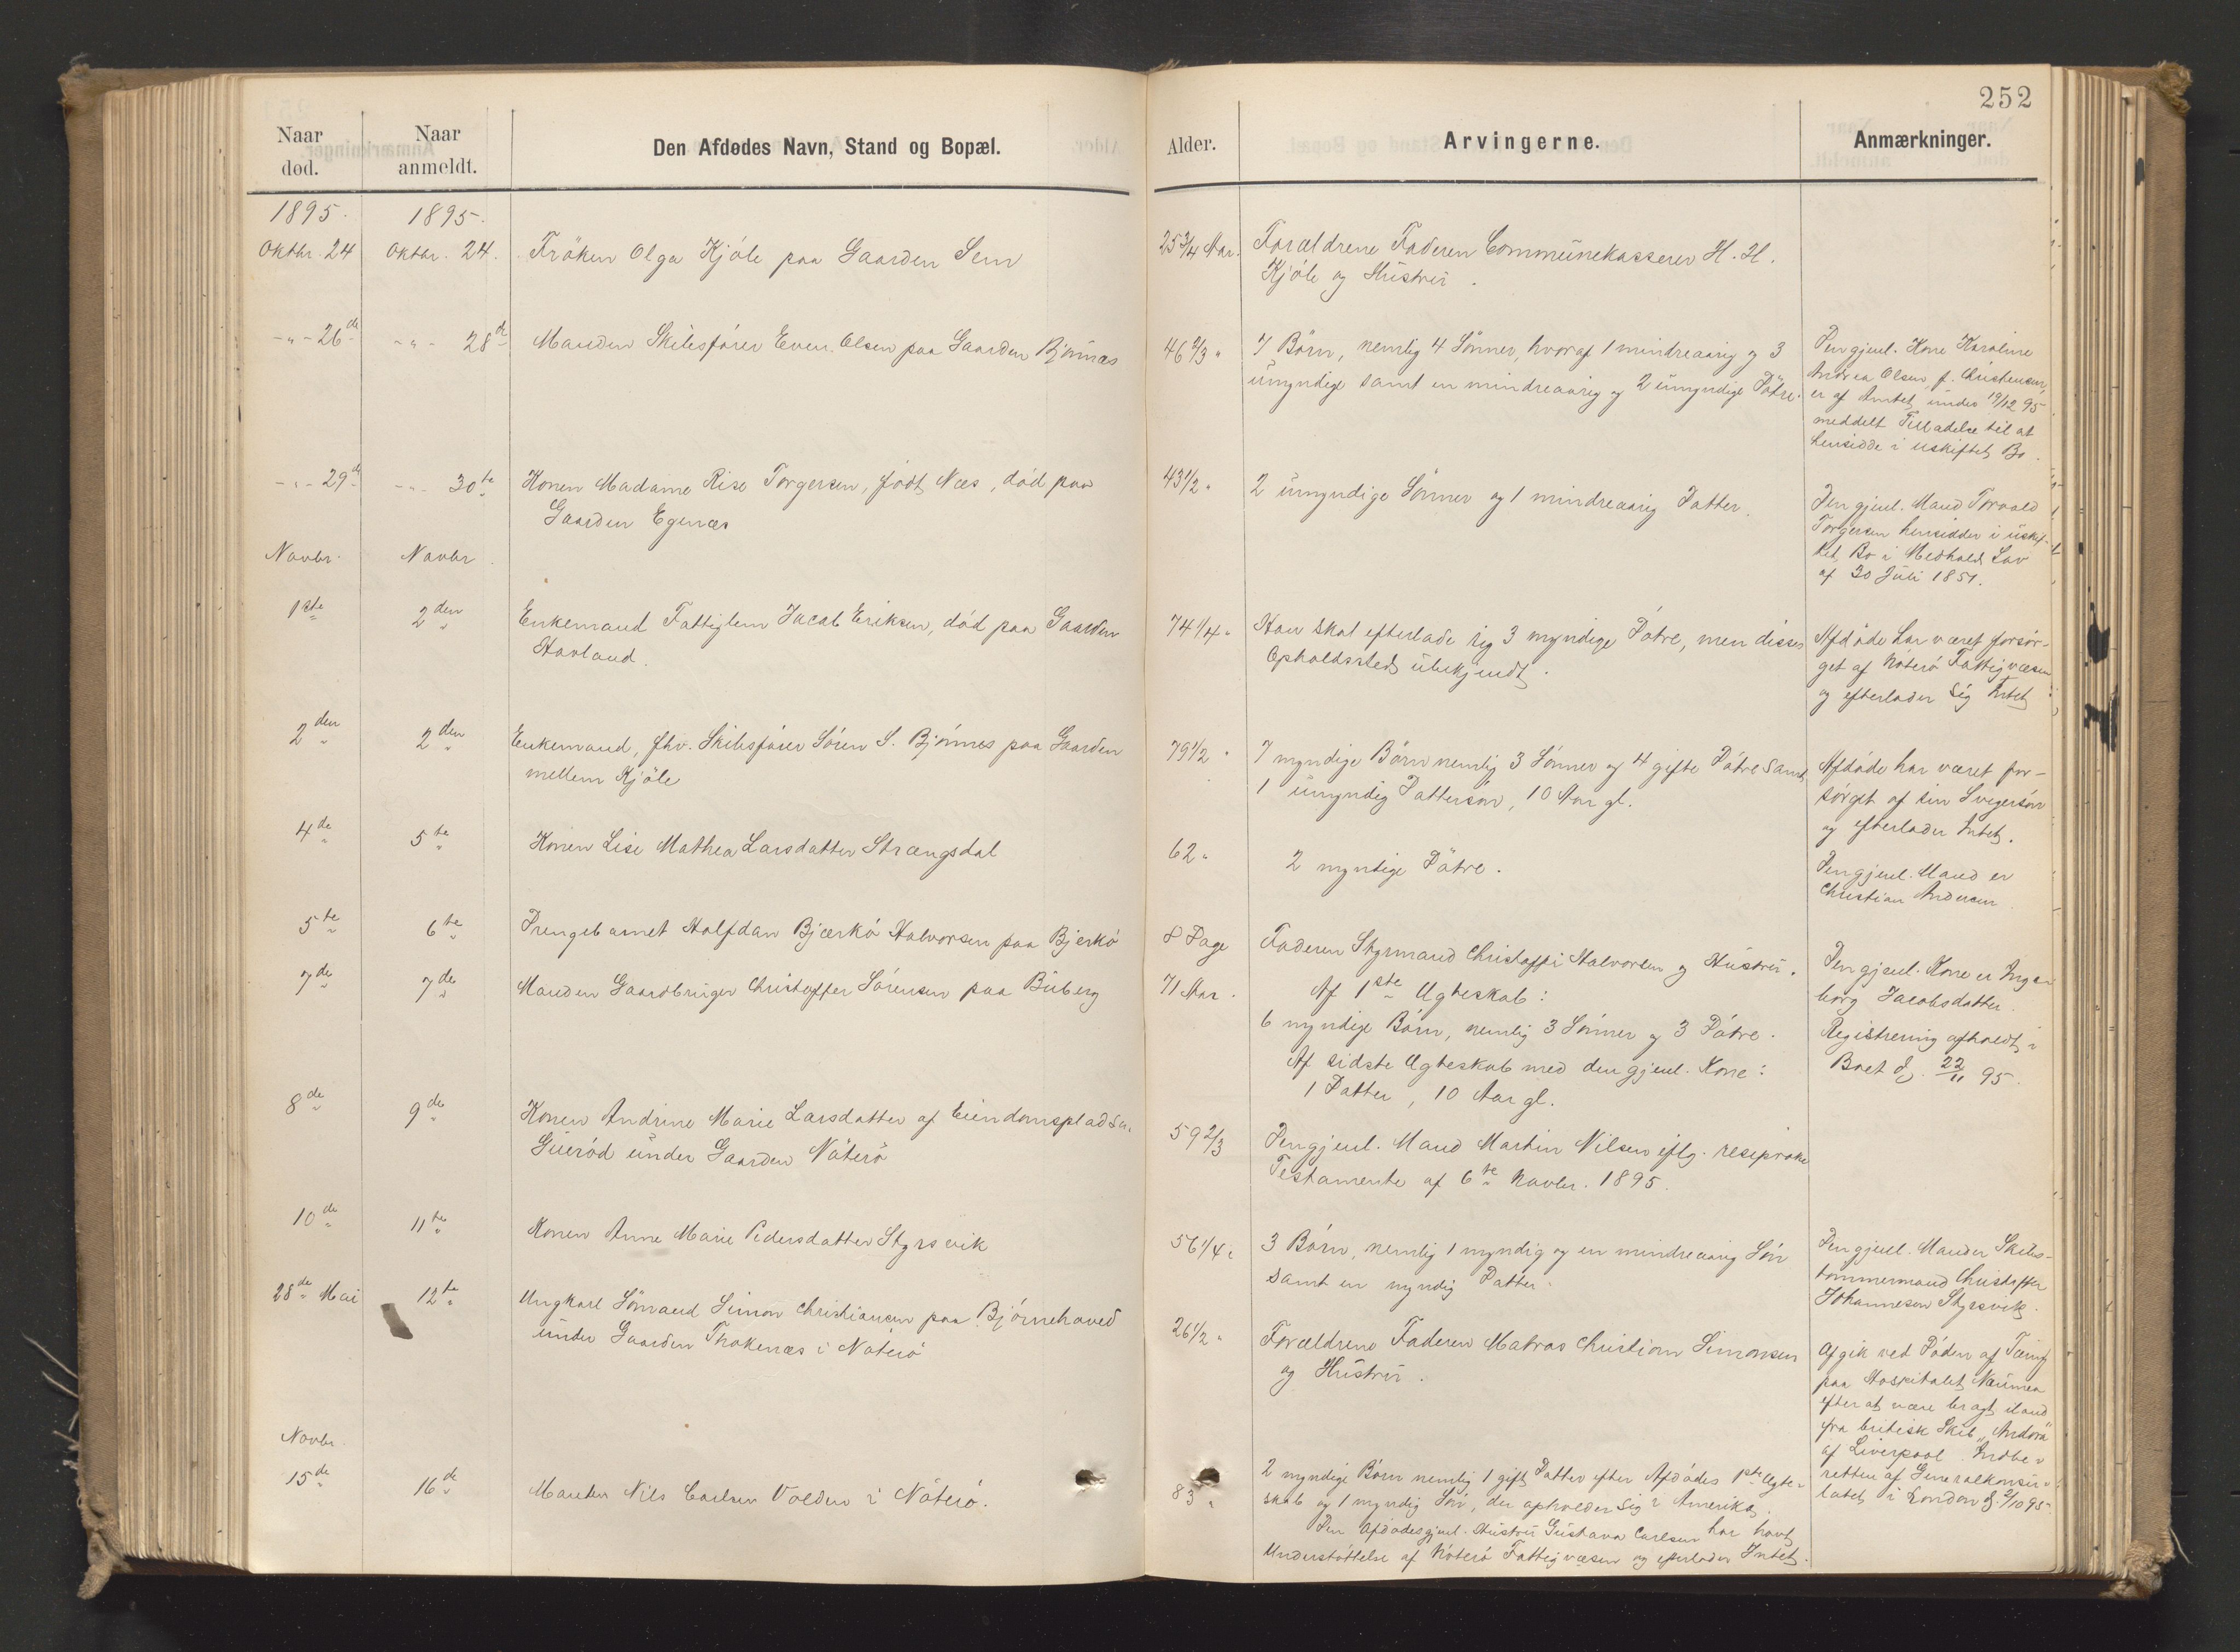 252
Naar død.
Naar anmeldt.
Den Afdødes Navn, Stand og Bopæl.
Alder.
Arvingerne.
Anmærkninger.
1895.
1895.
Oktbr. 24
Oktbr. 24.
Fröken Olga Kjøle paa Gaarden Sem
25 3/4 Aar.
Forældrene Faderen Communekasserer H. H.
Kjøle og Hustru.
-"- 26de
-"- 28de
Manden Skibsfører Even Olsen paa Gaarden Bjønnæs
46 2/3 "
7 Børn, nemlig 4 Sønner, hvoraf 1 mindreaarig og 3
umyndige samt en mindreaarig og 2 umyndige Døtre.
Den gjenl. Kone Karoline
Andrea Olsen, f. Christensen,
er af Amtet under 19/12 95
meddelt Tilladelse til at
hensidde i uskiftet Bo.
-"- 29de
-"- 30te
Konen Madame Rise Torgersen, født Næs, død paa
Gaarden Egenæs
43 1/2 "
2 umyndige Sønner og 1 mindreaarig Datter.
Den gjenl. Mand Torvald
Torgersen hensidder i uskif-
tet Bo i Medhold Lov
af 30 Juli 1851.
Novbr.
Novbr.
1ste
2den
Enkemand Fattiglem Jacob Eriksen, død paa Gaarden
Hovland.
74 1/4 "
Han skal efterlade sig 3 myndige Døtre, men disses
Opholdssted ubekjendt.
Afdøde har været forsør-
get af Nøterø Fattigvæsen
og efterlader sig Intet
2den
2den
Enkemand, fhv. Skibsfører Søren S. Bjønnes paa Gaarden
mellem Kjøle
79 1/2 "
7 myndige Børn nemlig 3 Sønner og 4 gifte Døtre samt
1 umyndig Dattersøn, 10 Aar gl.
Afdøde har været for-
sørget af sin Svigersøn
og efterlader Intet.
4de
5te
Konen Lise Mathea Larsdatter Strængsdal
62 "
2 myndige Døtre.
Den gjenl. Mand er
Christian Andersen
5te
6te
Drengebarnet Halfdan Bjærkø Halvorsen paa Bjerkø
8 Dage
Faderen Styrmand Christoffer Halvorsen og Hustru.
7de
7de
Manden Gaardbruger Christoffer Sørensen paa Buberg
71 Aar.
Af 1ste Ægteskab:
6 myndige Børn, nemlig 3 Sønner og 3 Døtre.
Af sidste Ægteskab med den gjenl. Kone:
1 Datter, 10 Aar gl.
Den gjenl. Kone er Inge-
borg Jacobsdatter.
Registrering afholdt i
Boet d. 22/11 95.
8de
9de
Konen Andrine Marie Larsdatter af Eiendomspladsen
Guerød under Gaarden Nøterø
59 2/3
Den gjenl. Mand Martin Nilsen iflg. resiproke
Testamente af 6te Novbr. 1895.
10de
11te
Konen Anne Marie Pedersdatter Styrsvik
56 1/4 "
3 Børn, nemlig 1 myndig og en mindreaarig Søn
samt en myndig Datter.
Den gjenl. Mand er Skibs-
tømmermand Christoffer
Johannesen Styrsvik.
28de Mai
12te
Ungkarl Sømand Simon Christiansen paa Bjørnehoved
under Gaarden Thokenæs i Nøterø
26 1/2 "
Forældrene Faderen Matros Christian Simonsen
og Hustru.
Afgik ved Døden af Tæring
paa Hospitalet Naumea
efter at være bragt iland
fra britisk Skib "Andora"
af Liverpool. Indbe-
retten af Generalkonsu-
latet i London d. 2/10 95.
Novbr.
15de
16de
Manden Nils Carlsen Volden i Nøterø.
83 "
2 myndige Børn nemlig 1 gift Datter efter Afdødes 1ste Ægte-
skab og 1 myndig Søn, der opholder sig i Amerika.
Den Afdødes gjenl. Hustru Gustava Carlsen har havt
Understøttelse af Nøterø Fattigvæsen og efterlader Intet.